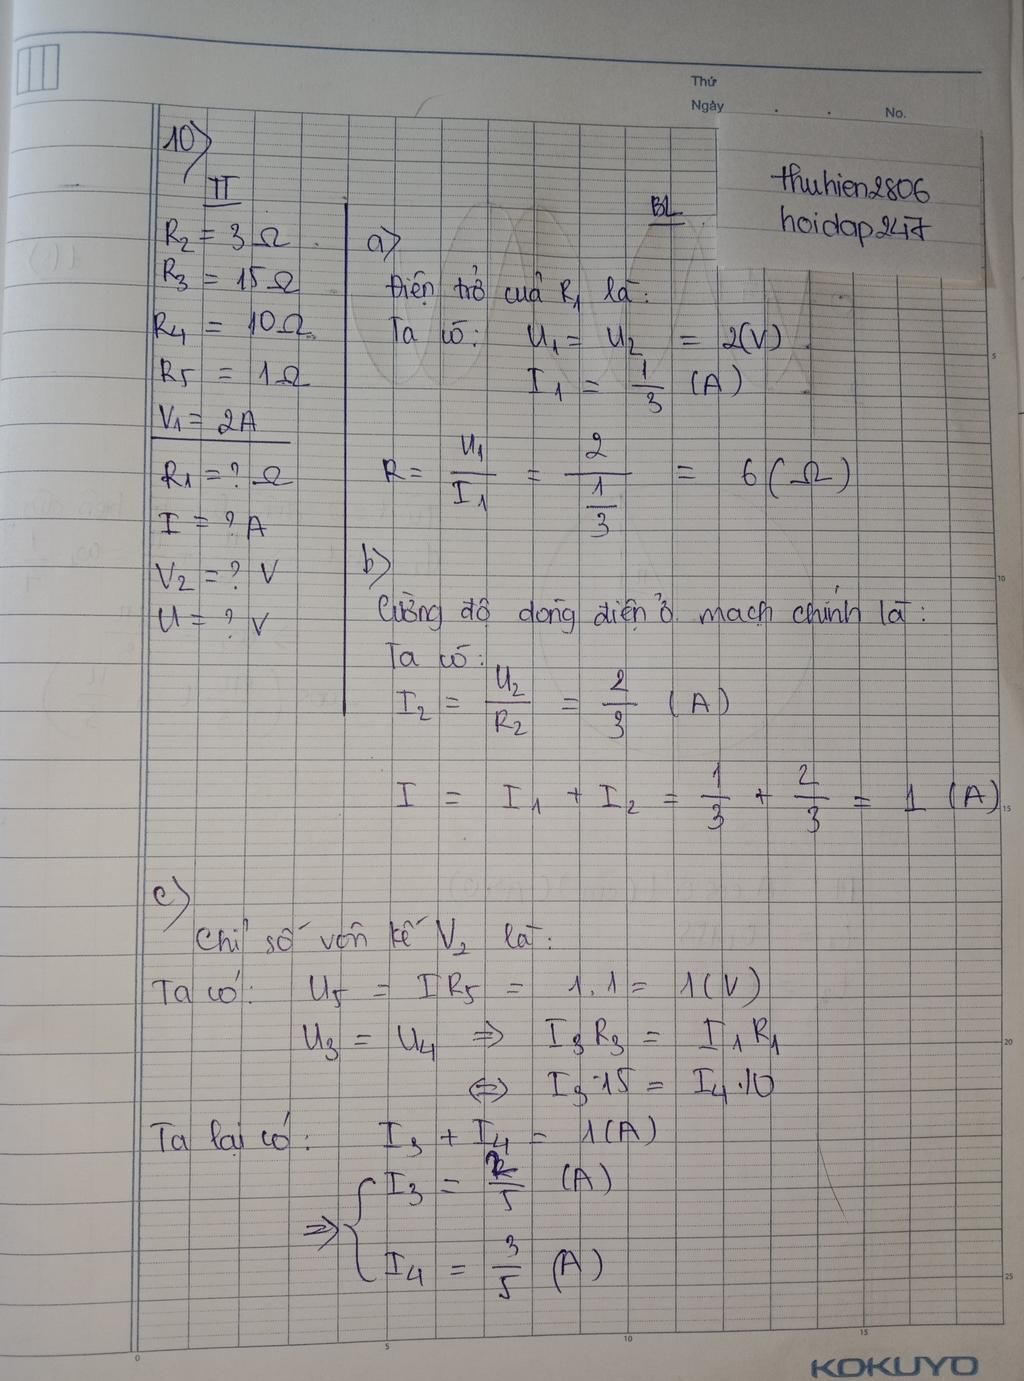 Thứ
Ngày . . No.
thuhien2806
hoidap247
10)
TT
R2 = 3 Ω
R3 = 15 Ω
R4 = 10 Ω
R5 = 1 Ω
V1 = 2A
R1 = ? Ω
I = ? A
V2 = ? V
U = ? V
BL
a)
Điện trở của R1 là:
Ta có: U1 = U2 = 2(V)
I1 = 1/3 (A)
R = U1/I1 = 2/(1/3) = 6(Ω)
b)
Cường độ dòng điện ở mạch chính là:
Ta có:
I2 = U2/R2 = 2/3 (A)
I = I1 + I2 = 1/3 + 2/3 = 1 (A)
c)
Chỉ số vôn kế V2 là:
Ta có: U5 = IR5 = 1.1 = 1(V)
U3 = U4 => I3R3 = I1R1
<=> I3.15 = I4.10
Ta lại có: I3 + I4 = 1(A)
=> { I3 = 2/5 (A)
I4 = 3/5 (A)
5
10
15
20
25
0
5
10
15
KOKUYO